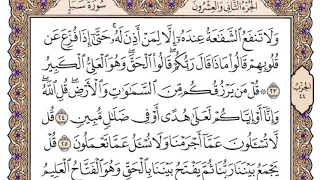 الجزء الثاني والعشرون
سورة سبأ
وَلَا تَنفَعُ ٱلشَّفَٰعَةُ عِندَهُۥٓ إِلَّا لِمَنْ أَذِنَ لَهُۥ حَتَّىٰٓ إِذَا فُزِّعَ عَن
قُلُوبِهِمْ قَالُوا۟ مَاذَا قَالَ رَبُّكُمْ قَالُوا۟ ٱلْحَقَّ وَهُوَ ٱلْعَلِىُّ ٱلْكَبِيرُ
٢٣ قُلْ مَن يَرْزُقُكُم مِّنَ ٱلسَّمَٰوَٰتِ وَٱلْأَرْضِ قُلِ ٱللَّهُ
وَإِنَّآ أَوْ إِيَّاكُمْ لَعَلَىٰ هُدًى أَوْ فِى ضَلَٰلٍ مُّبِينٍ ٢٤ قُل
لَّا تُسْـَٔلُونَ عَمَّآ أَجْرَمْنَا وَلَا نُسْـَٔلُ عَمَّا تَعْمَلُونَ ٢٥ قُلْ
يَجْمَعُ بَيْنَنَا رَبُّنَا ثُمَّ يَفْتَحُ بَيْنَنَا بِٱلْحَقِّ وَهُوَ ٱلْفَتَّاحُ ٱلْعَلِيمُ
الحزب
٤٤